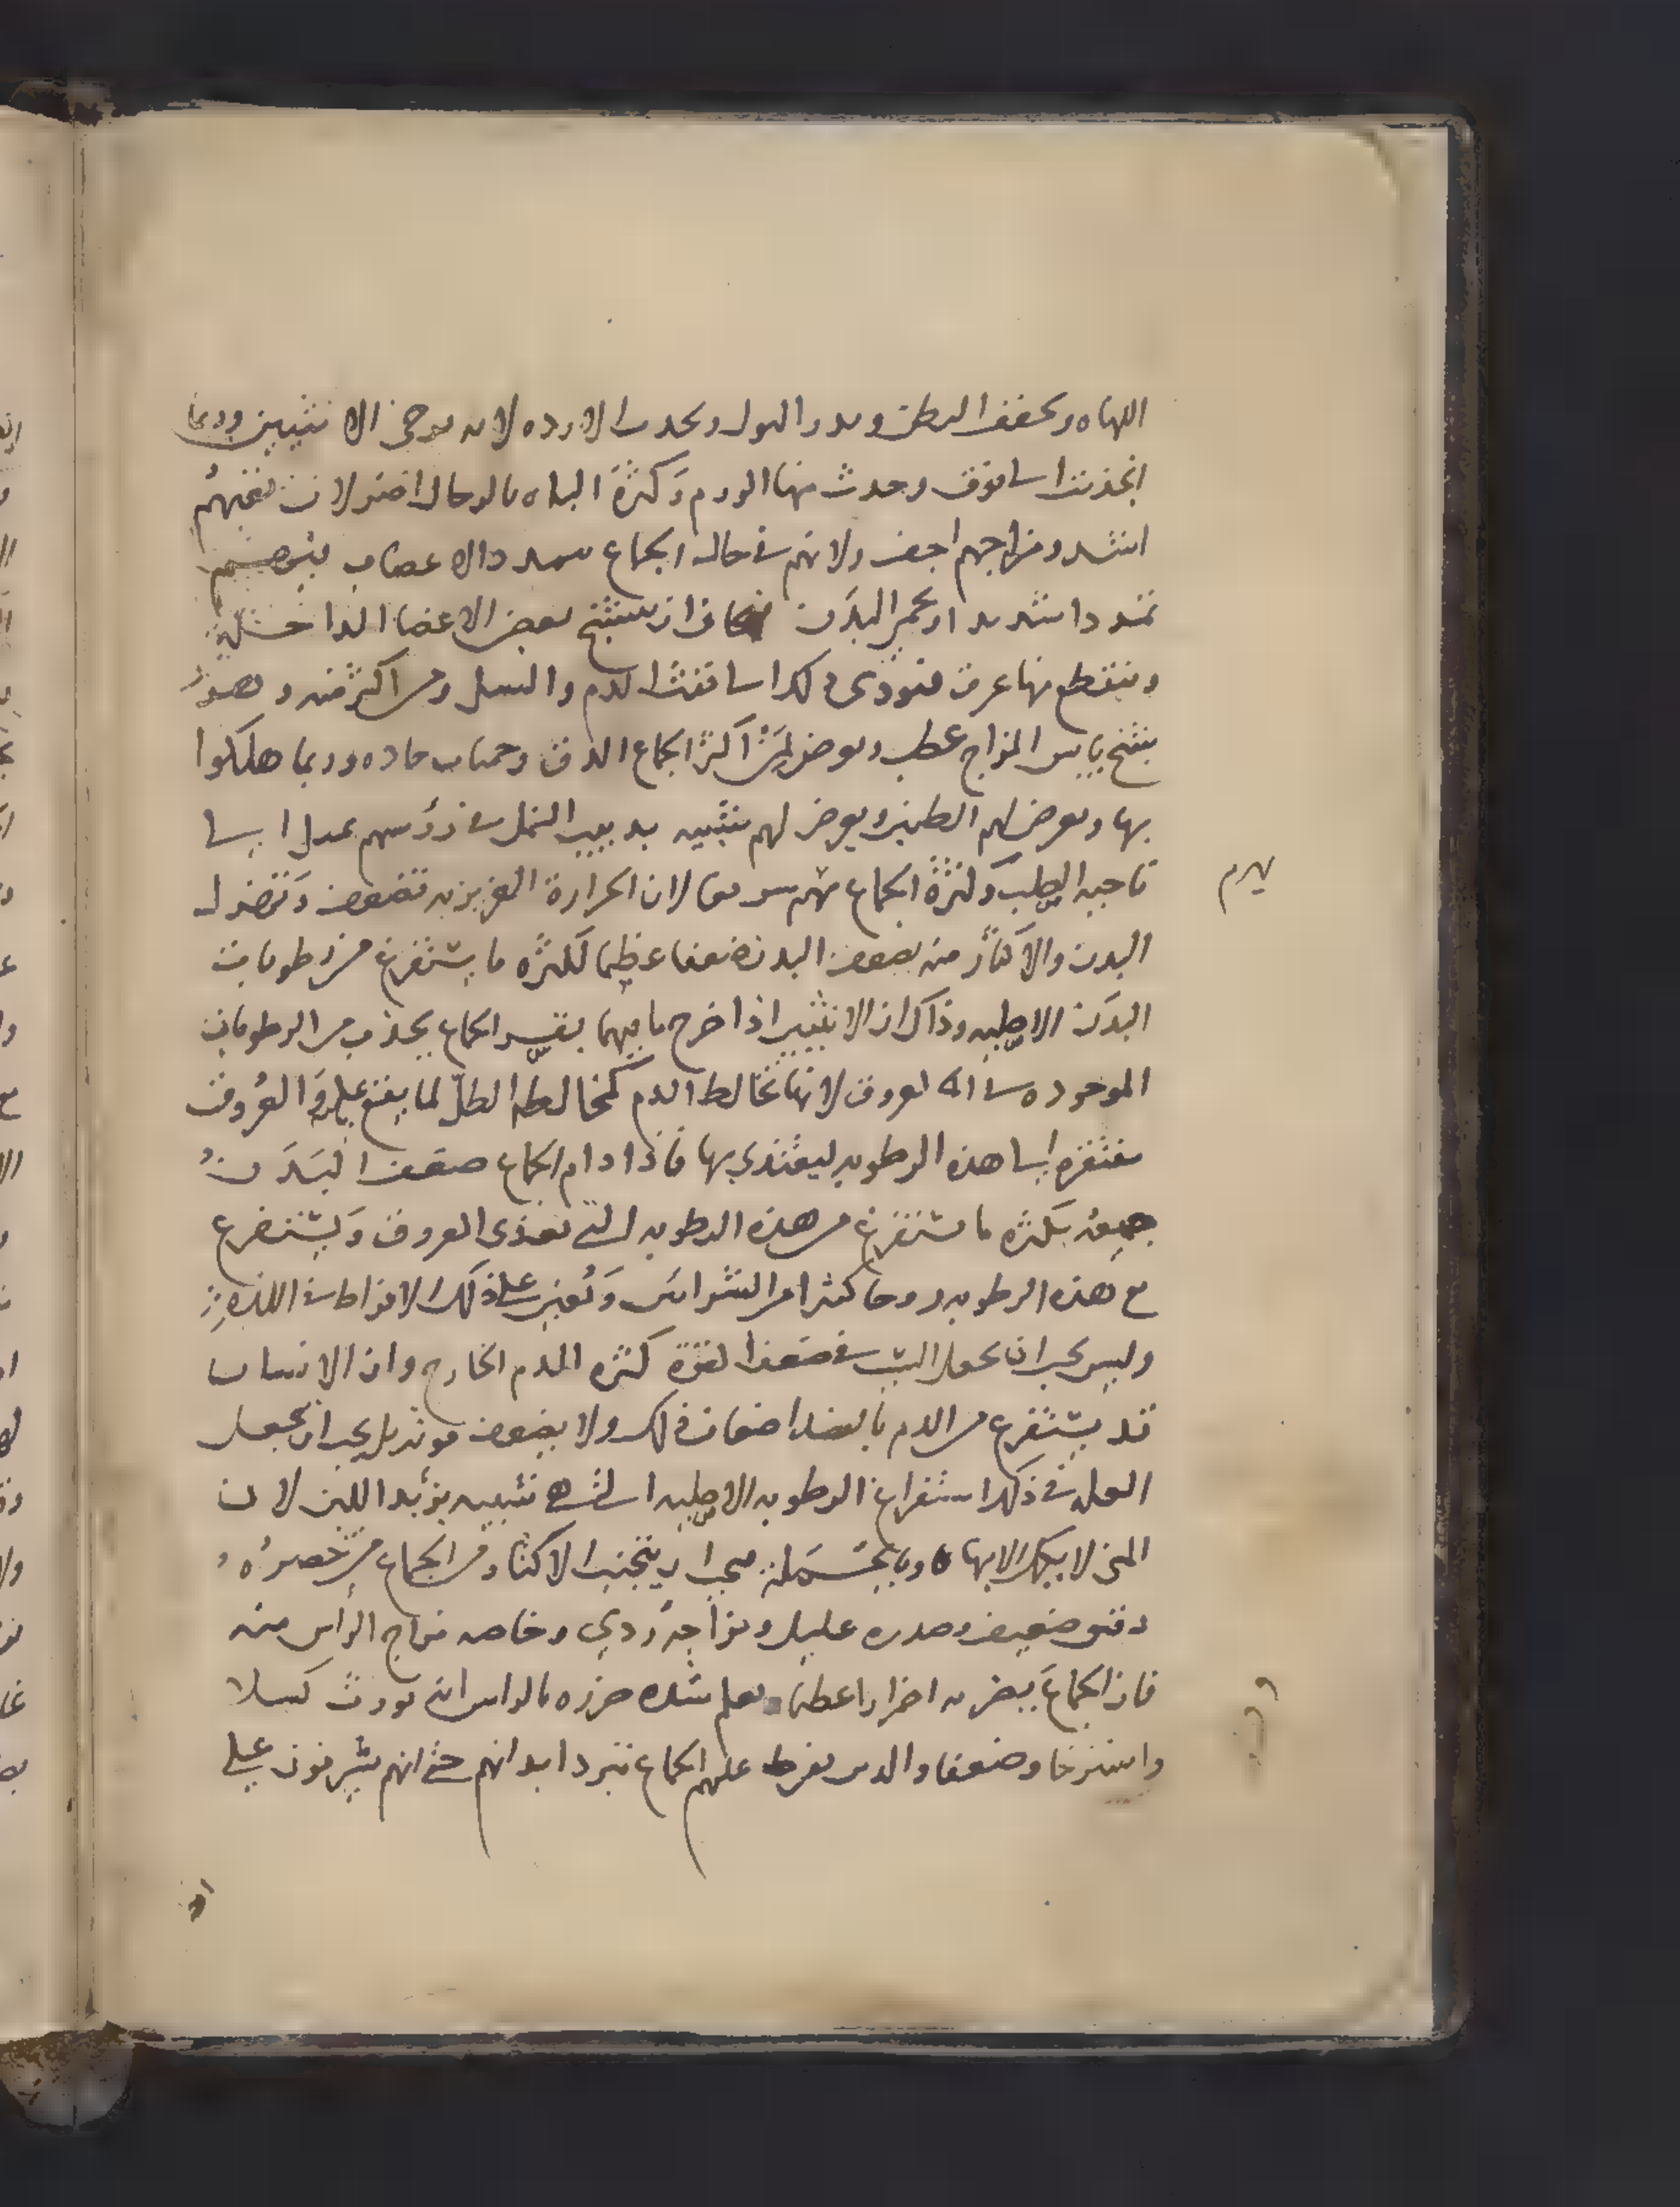 اللهاه ويجفف البطن ويدر البول ويحدث الادره لانه يرخي الانثيين وربما
انجذبتا الى فوق وحدث منها الورم وكثرة الباه بالرجال اضر لان تعبهم
اشد ومزاجهم اجف ولانهم في حال الجماع تمدد الاعصاب
تمددا شديدا ويحمر البدن فخاف ان ينتتح بعض الاعضا الداخلة
وينقطع منها عرق فيودي ذلك الى نفث الدم والسل ومن اكثر منه وهو
يابس المزاج عطب ويعرض لمن اكثر الجماع الدق وحميات حاده وربما هلكوا
بها ويعرض لهم الطنين ويعرض لهم شبيه بدبيب النمل في رؤسهم الى
ناحية الصلب وكثرة الجماع لان الحرارة الغريزيه تضعف
البدن والاكثار منه يضعف البدن ضعفا عظيما لكثره ما يستفرغ من رطوبات
البدن الاصليه وذاك ان الانثيين اذا خرج ما فيهما الجماع يجذب من الرطوبات
الموجوده في العروق لانها تخالط الدم كمخالطة الطل لما يقع عليه والعروق
هذه الرطوبه ليغتذي بها فاذا دام الجماع ضعف البدن
جميعه بكثره ما يستفرغ من هذه الرطوبه التي تغذي العروق ويستفرغ
مع هذه الرطوبه روحا كثيرا من الشرايين ويعين على ذلك الافراط في اللذه
وليس يجب ان يجعل السبب في ضعف القوة كثره الدم الخارج وان الانسان
قد يستفرغ من الدم اضعاف ذلك ولا يضعف قوته بل يجب ان يجعل
العله في ذلك استفراغ الرطوبه الاصليه التي هي شبيه بزبد اللبن لان
المني لا يكون الا بها وبالجملة فيجب ان يتجنب الاكثار من الجماع من خصره
دقيق ضعيف وصدره عليل ومزاجه ردي وخاصه مزاج الراس منه
فان الجماع يضر به اضرارا عظيما يعلم شده ضرره بالراس انه يورث كسلا
واسترخا وضعفا والذين يفرط عليهم الجماع تبرد ابدانهم حتى انهم يشرفون على